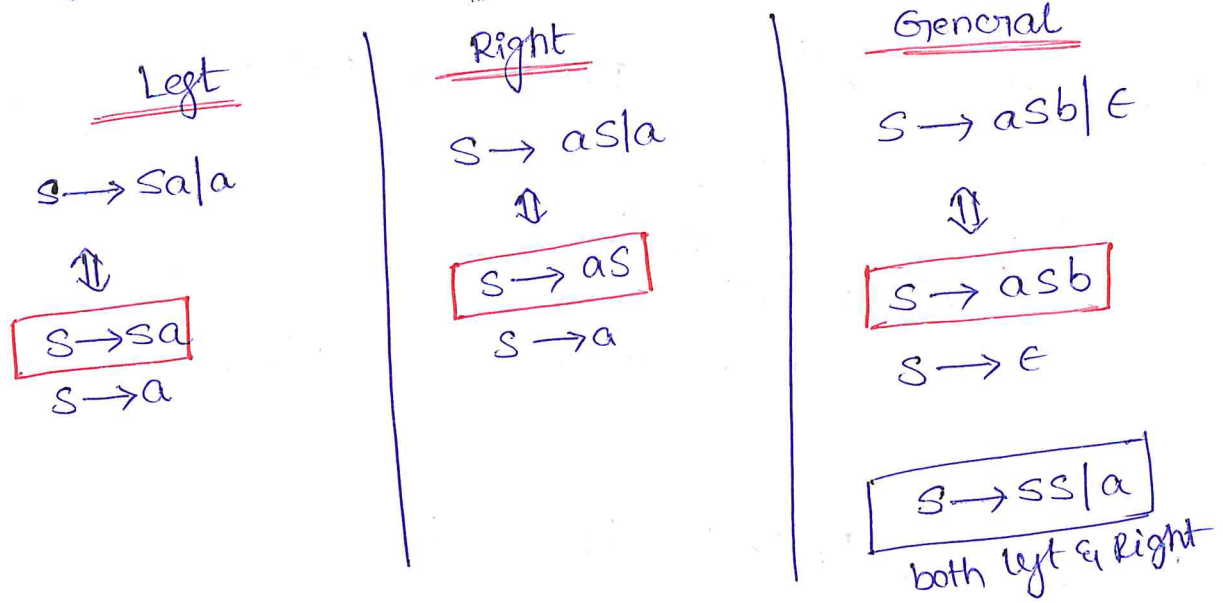 Left
S → Sa|a
⇕
S → Sa
S → a
Right
S → aS|a
⇕
S → aS
S → a
General
S → aSb|ϵ
⇕
S → aSb
S → ϵ
S → SS|a
both left & Right